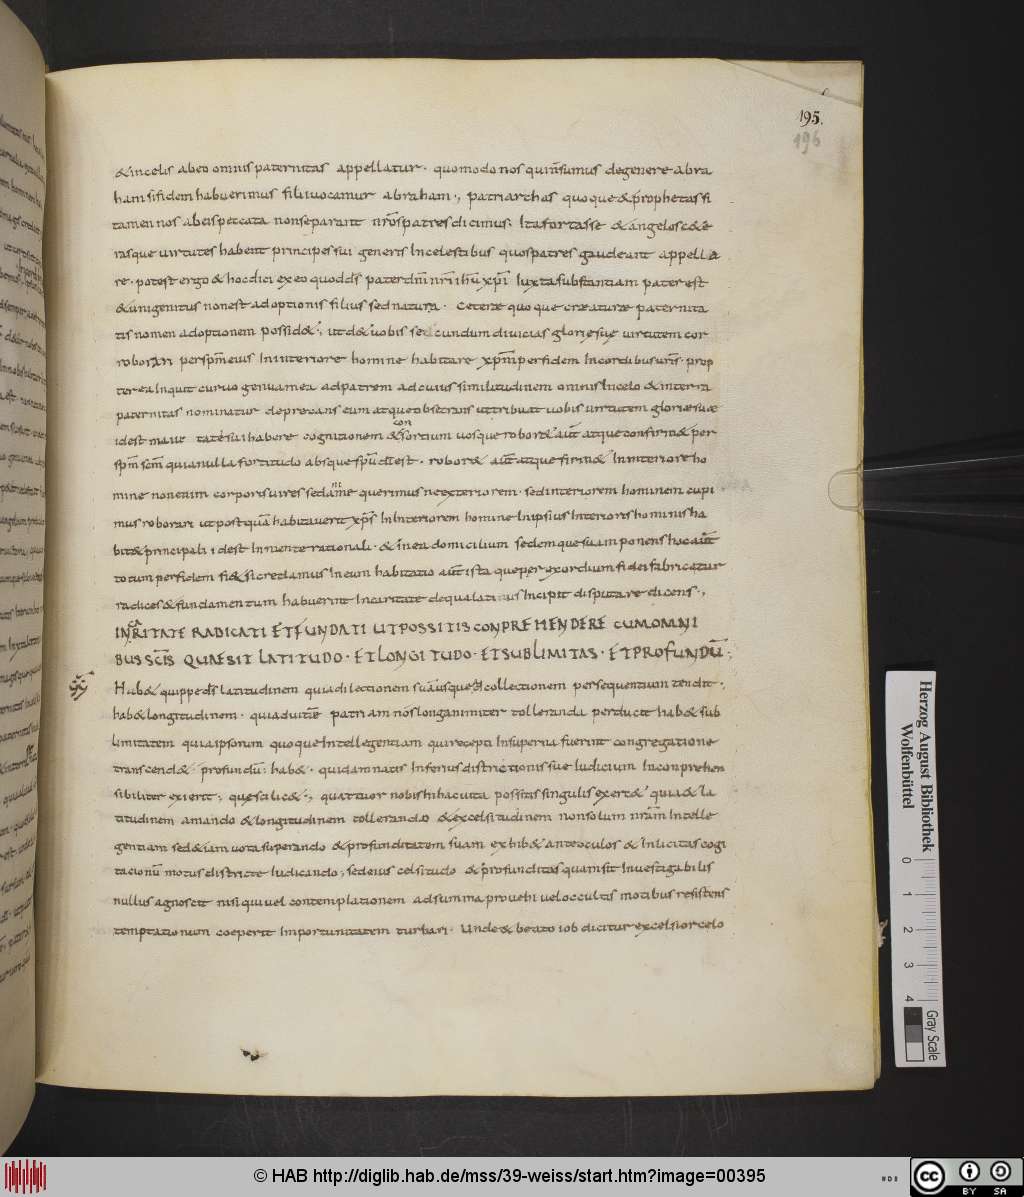 195.
196
& incelis abeo omnis paternitas appellatur · quomodo nos quin̄sumus degenere abra
ham sifidem habuerimus filii uocamur abraham ·, patriarchas quoque & prophetas si
tamen nos abeis peccata nonseparant nr̄os patres dicimus · Ita fortasse & angelos c&e
rasque uirtutes habent principes sui generis Incelestibus quos patres gaudeant appella
re · potest ergo & hoc dici ex eo quod ds̄ pater dn̄i nr̄i ih̄u xp̄i Iuxta substantiam pater est
& unigenitus non est adoptionis filius sed natura · Ceterae quoque creaturae paternita
tis nomen adoptionem possid& ·, ut d& uobis secundum diuicias gloriesue uirtutem cor
roborari per sp̄m eius In interiore homine habitare xp̄m perfidem In cordibus ur̄is · prop
terea Inquit curuo genua mea adpatrem adcuius similitudinem omnis Incelo & interra
paternitas nominatur deprecans eum atque obsecrans ut tribuat uobis uirtutem gloriae suae
con
idest maiestatē sui habere cognitionem & sortium uosque robor& aut̄ atque confirm& per
sp̄m sc̄m quia nulla fortitudo absque sp̄u dī est · robor& aut̄ atque firm& In interiore ho
mine non enim corporis uires sed animae querimus nec exteriorem · sed interiorem hominem cupi
mus roborari ut postquā habitauerit xp̄s In Interiorem homine In ipsius Interioris hominis ha
bit& principali idest In mente rationali · & in ea domicilium sedemque suam ponens hoc aut̄
totum perfidem fi& si credamus In eum habitatio aut̄ ista que per exordium fidei fabricatur
radices & fundamentum habuerint In caritate de qua latius Incipit disputare dicens ·,
IN CARITATE RADICATI ET FUNDATI UT POSSITIS CONPREHENDERE CUM OMNI
BUS SC̄IS QUAE SIT LATITUDO · ET LONGITUDO · ET SUBLIMITAS · ET PROFUNDŪ ·,
Hab& quippe ds̄ latitudinem quia dilectionem suā usque ad collectionem persequentium tendit ·,
hab& longitudinem · quia ad uitae patriam nos longanimiter tollerando perducit hab& sub
limitatem quia ipsorum quoque Intellegentiam qui recepti In superna fuerint congregatione
transcend& · profundū hab& · quia damnatis Inferius districtionis sue Iudicium Inconprehen
sibiliter exierit ·, que scilic& ·, quattuor nobis hic hac uita positis singulis exer& quia & la
titudinem amando & longitudinem tollerando & excelsitudinem non solum nr̄am Intelle
gentiam sed & iam uota superando & profunditatem suam exhib& ante oculos & Inlicitas cogi
tacionū motus districte Iudicando ·, sed eius celsitudo & profunditas quam sit Inuestigabilis
nullus agnoscit nisi qui uel contemplationem ad summa prouehi uel occultis motibus resistens
temptationum coeperit Importunitatem turbari · Unde & beato iob dicitur excelsior celo
Herzog August Bibliothek
Wolfenbüttel
0 1 2 3 4
Gray Scale
© HAB http://diglib.hab.de/mss/39-weiss/start.htm?image=00395
cc BY SA